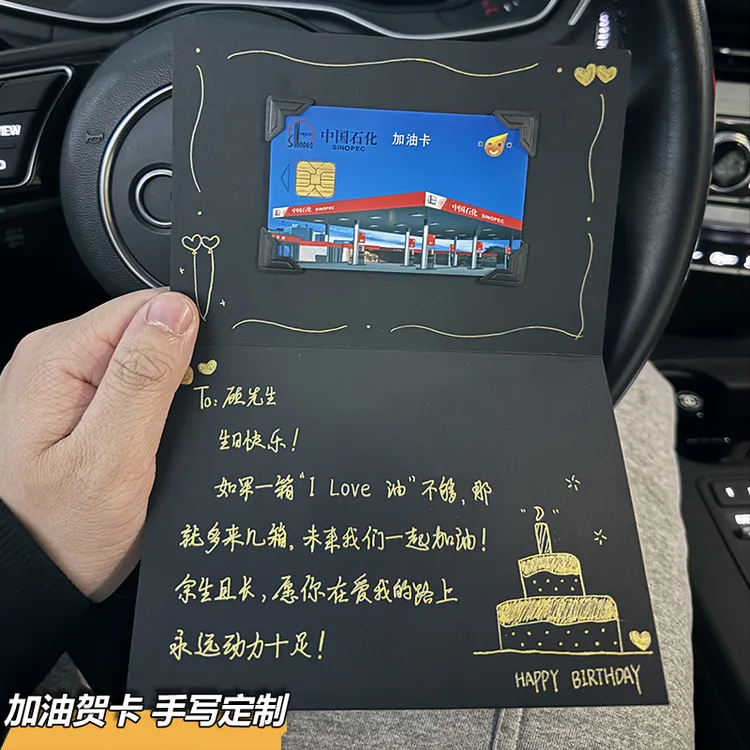 VIEW
中国石化
SINOPEC
加油卡
Sinopec
中国石化 SINOPEC
中国石化 SINOPEC
To: 顾先生
生日快乐！
如果一箱"I Love 油"不够，那
就多来几箱，未来我们一起加油！
余生且长，愿你在爱我的路上
永远动力十足！
HAPPY BIRTHDAY
加油贺卡 手写定制